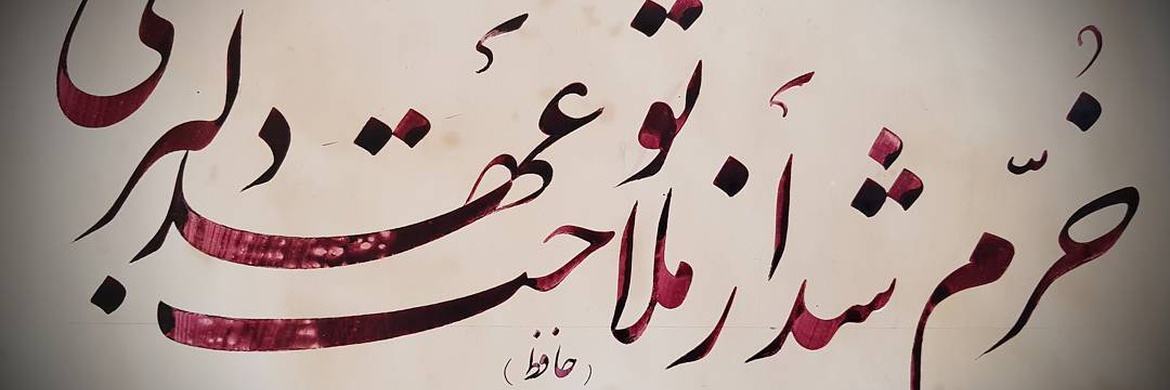 خُرّم شد از ملاحت تو عهد دلبری
(حافظ)